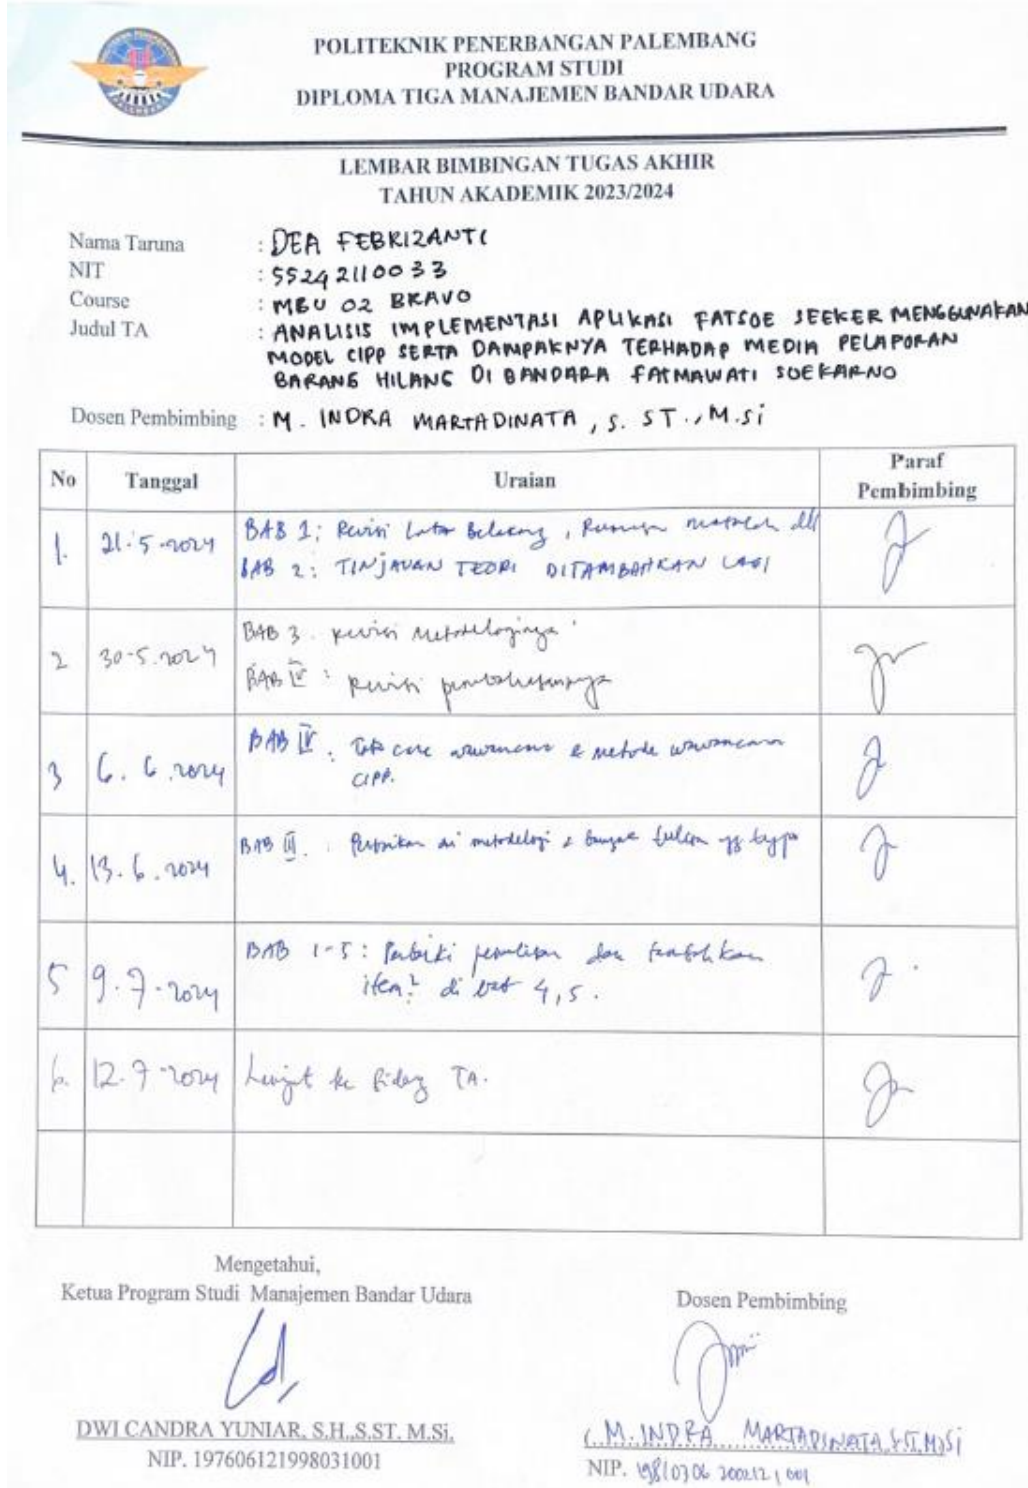 POLITEKNIK PENERBANGAN PALEMBANG
PROGRAM STUDI
DIPLOMA TIGA MANAJEMEN BANDAR UDARA
LEMBAR BIMBINGAN TUGAS AKHIR
TAHUN AKADEMIK 2023/2024
Nama Taruna : DEA FEBRIZANTI
NIT : 55242110033
Course : MBU 02 BRAVO
Judul TA : ANALISIS IMPLEMENTASI APLIKASI FATSOE SEEKER MENGGUNAKAN
MODEL CIPP SERTA DAMPAKNYA TERHADAP MEDIA PELAPORAN
BARANG HILANG DI BANDARA FATMAWATI SOEKARNO
Dosen Pembimbing : M. INDRA MARTADINATA, S. ST., M.Si
No Tanggal Uraian Paraf
Pembimbing
1. 21-5-2024 BAB 1: Revisi Latar Belakang, Rumusan masalah dll
BAB 2: TINJAUAN TEORI DITAMBAHKAN LAGI
2 30-5-2024 BAB 3. Revisi Metodologinya
BAB IV: Revisi pembahasannya
3 6.6.2024 BAB IV. cara wawancara & metode wawancara
CIPP.
4. 13.6.2024 BAB III. Perbaikan di metodologi & banyak tulisan yg typo
5 9.7-2024 BAB 1-5: Perbaiki penulisan dan tambahkan
item² di bab 4,5.
6. 12.7-2024 Lanjut ke Sidang TA.
Mengetahui,
Ketua Program Studi Manajemen Bandar Udara
Dosen Pembimbing
DWI CANDRA YUNIAR, S.H.,S.ST. M.Si.
NIP. 197606121998031001
M. INDRA MARTADINATA, S.ST, M.Si
NIP. 19810306 200212 1 001